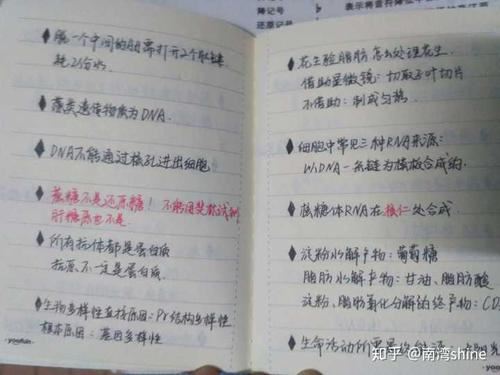 降记号
还原记号
表示将音符降低
脱一个中间的肽需打开2个肽键
耗2分水.
藻类遗传物质为DNA.
DNA不能通过核孔进出细胞
蔗糖不是还原糖！不能用斐林试剂
肝糖原也不是.
所有抗体都是蛋白质
抗原不一定是蛋白质.
生物多样性直接原因：Pr结构多样性
根本原因：基因多样性
花生验脂肪怎么处理花生.
借助显微镜：切取子叶切片
不借助：制成匀浆
细胞中常见三种RNA来源：
以DNA一条链为模板合成的.
核糖体RNA在核仁处合成.
淀粉水解产物：葡萄糖
脂肪水解产物：甘油、脂肪酸
淀粉、脂肪氧化分解的终产物：CO
生命活动所需
知乎 @南湾shine